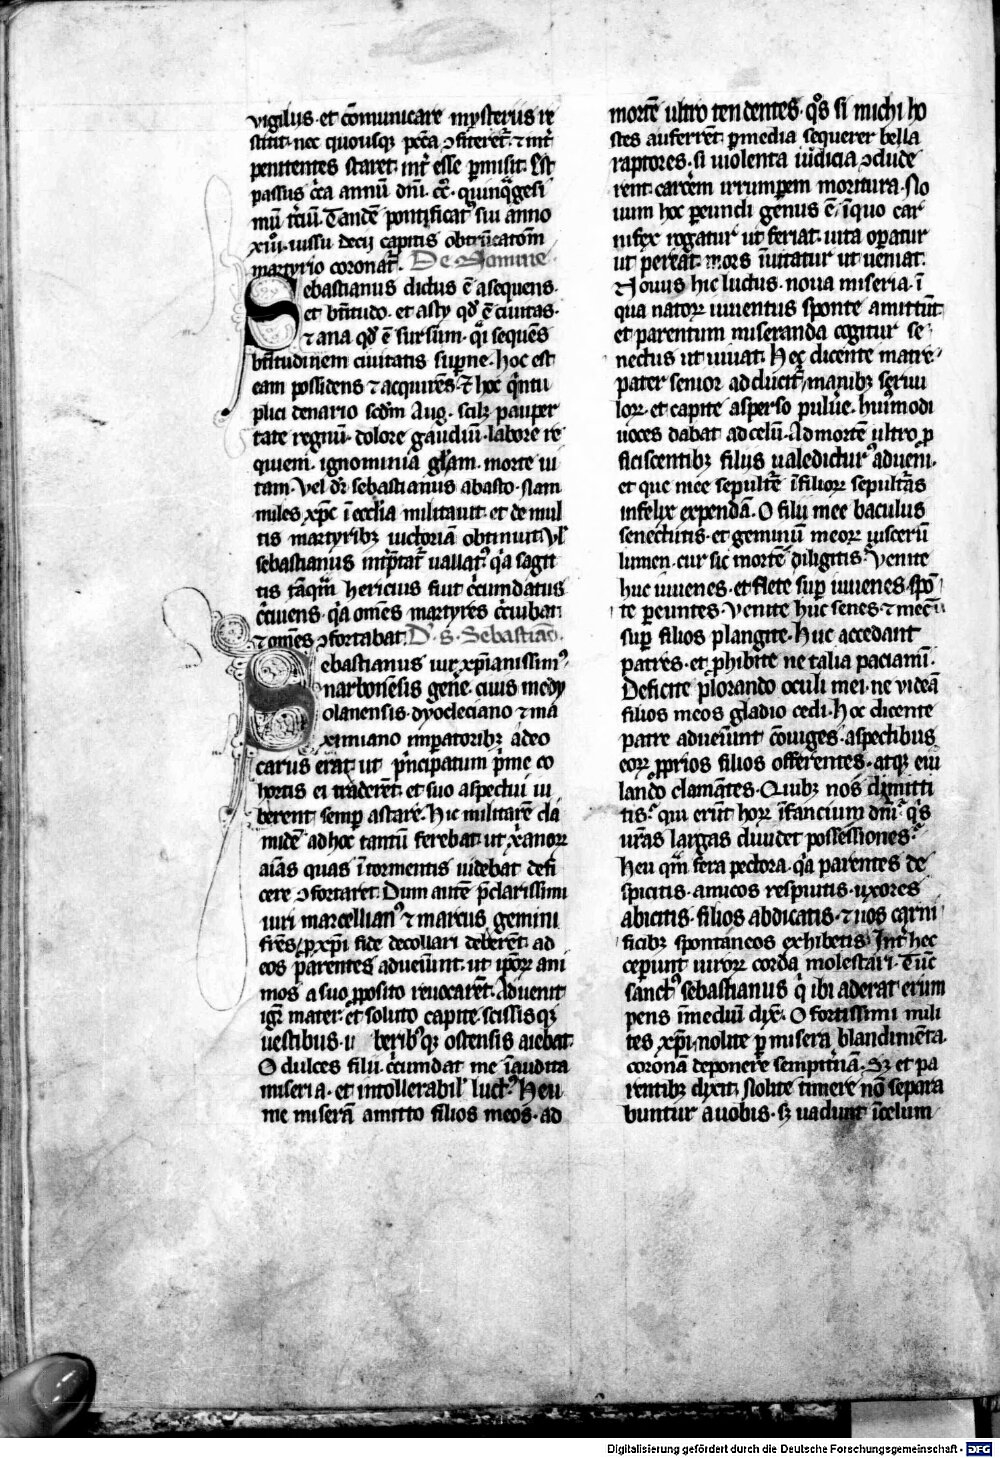 vigiliis et cōmunicare mysteriis re
stitit. nec quousqꝫ pctā ↄfiteret᷑. ⁊ int᷑
penitentes staret. int᷑ esse ꝑmisit. Est
passus c̄ca annū dn̄i. cc̄. quinq̄gesi
mū t̄ciū. Tandē pontificat᷒ sui anno
xiiiͦ. iussu decii capitis obtrūcatōm
martyrio coronat᷑. De Nomine.
Sebastianus dictus ē a sequens.
et btītudo. et asty qd̄ ē ciuitas.
⁊ ana qd̄ ē sursum. q̄i sequēs
btītudinem ciuitatis suꝑne. hoc est
eam possidens ⁊ acquirēs. ⁊ hoc q̄ntu
plici denario scdm̄ Aug. scilꝫ pauper
tate regnū. dolore gaudiū. labore re
quiem. ignominia gl̄am. morte ui
tam. Vel dr̄ sebastianus a basto. Nam
miles xp̄c ī ecclīa militauit. et de mul
tis martyribꝫ uictoriā obtinuit. Vl̄
sebastianus int̄p̄tat᷑ uallat᷒. q̄a sagit
tis tāq̄m hericius fuit c̄cumdatus
c̄cuens. q̄a om̄es martyres c̄cuibat.
⁊ om̄es ↄfortabat. D᷒. S. Sebastiāo.
Sebastianus uir xp̄ianissim᷒.
narbonēsis gen̄e. ciuis medy
olanensis. dyocleciano ⁊ ma
ximiano imꝑatoribꝫ adeo
carus erat ut p̄ncipatum p̄me co
hortis ei traderēt. et suo aspectui iu
berent semꝑ astare. Hic militarē cla
midē ad hoc tantū ferebat. ut xp̄ianoꝝ
aīas quas ī tormentis uidebat defi
cere ↄfortaret. Dum autē p̄clarissimi
uiri marcellian᷒ ⁊ marcus gemini
frēs. ꝓ xp̄i fide decollari deberēt. ad
eos parentes aduen̄unt. ut ip̄oꝝ ani
mos a suo ꝓposito reuocarēt. Aduenit
igr̄ mater. et soluto capite. scissisqꝫ
uestibus. u beribꝰqꝫ ostensis aiebat.
O dulces filii. c̄cumdat me īaudita
miseria. et intollerabil᷑ luct᷒. Heu
me miserā amitto filios meos. ad
mortē ultro tendentes. qͦs si michi ho
stes auferrēt. ꝑ media sequerer bella
raptores. si uiolenta iudicia ↄclude
rent. carcēm irrumꝑem moritura. No
uum hoc ꝑeundi genus ē. ī quo car
nifex rogatur ut feriat. uita optatur
ut pereat. mors inuitatur ut ueniat.
Nouus hic luctus. noua miseria. ī
qua natoꝝ iuuentus sponte amittit᷑.
et parentum miseranda cogitur se
nectus ut uiuat. Hec dicente matre.
pater senior adducit᷑. manibꝫ seruu
loꝝ. et capite asperso puluēe. huiꝰmodi
uoces dabat ad celū. Ad mortē ultro ꝓ
ficiscentibꝫ filiis ualedictur᷒ adueni.
et que mee sepultūe ī filioꝝ sepultūas
infelix expendā. O filii mee baculus
senectutis. et geminū meoꝝ uisceꝝ
lumen. cur sic mortē diligitis. Venite
huc iuuenes. et flete suꝑ iuuenes spō
te ꝑeuntes. Venite huc senes. ⁊ mecū
suꝑ filios plangite. Huc accedant
patres. et ꝓhibite ne talia paciamī.
Deficite plorando oculi mei. ne videā
filios meos gladio cedi. Hoc dicente
patre aduen̄unt cōiuges. aspectibus
eoꝝ ꝓprios filios offerentes. atqꝫ eiu
lando clamātes. Quibꝫ nos dimitti
tis. qui erūt hoꝝ īfancium dn̄i. q᷒s
uras largas diuidet possessiones.
Heu q̄m ferra pectora. q̄a parentes de
spicitis. amicos respuitis. uxores
abicitis. filios abdicatis. ⁊ uos carni
ficibꝫ spontaneos exhibetis. Int᷑ hec
ceꝑunt uiroꝝ corda molestari. Tūc
sanct᷒ sebastianus q̄ ibi aderat erum
pens ī mediū dix̄. O fortissimi mili
tes xp̄i. nolite ꝑ misera blandimēta.
coronā deponere sempit̄nā. Sꝫ et pa
rentibꝫ dixit. Nolite timere. nō separa
buntur a uobis. sꝫ uadunt ī celum
Digitalisierung gefördert durch die Deutsche Forschungsgemeinschaft - DFG